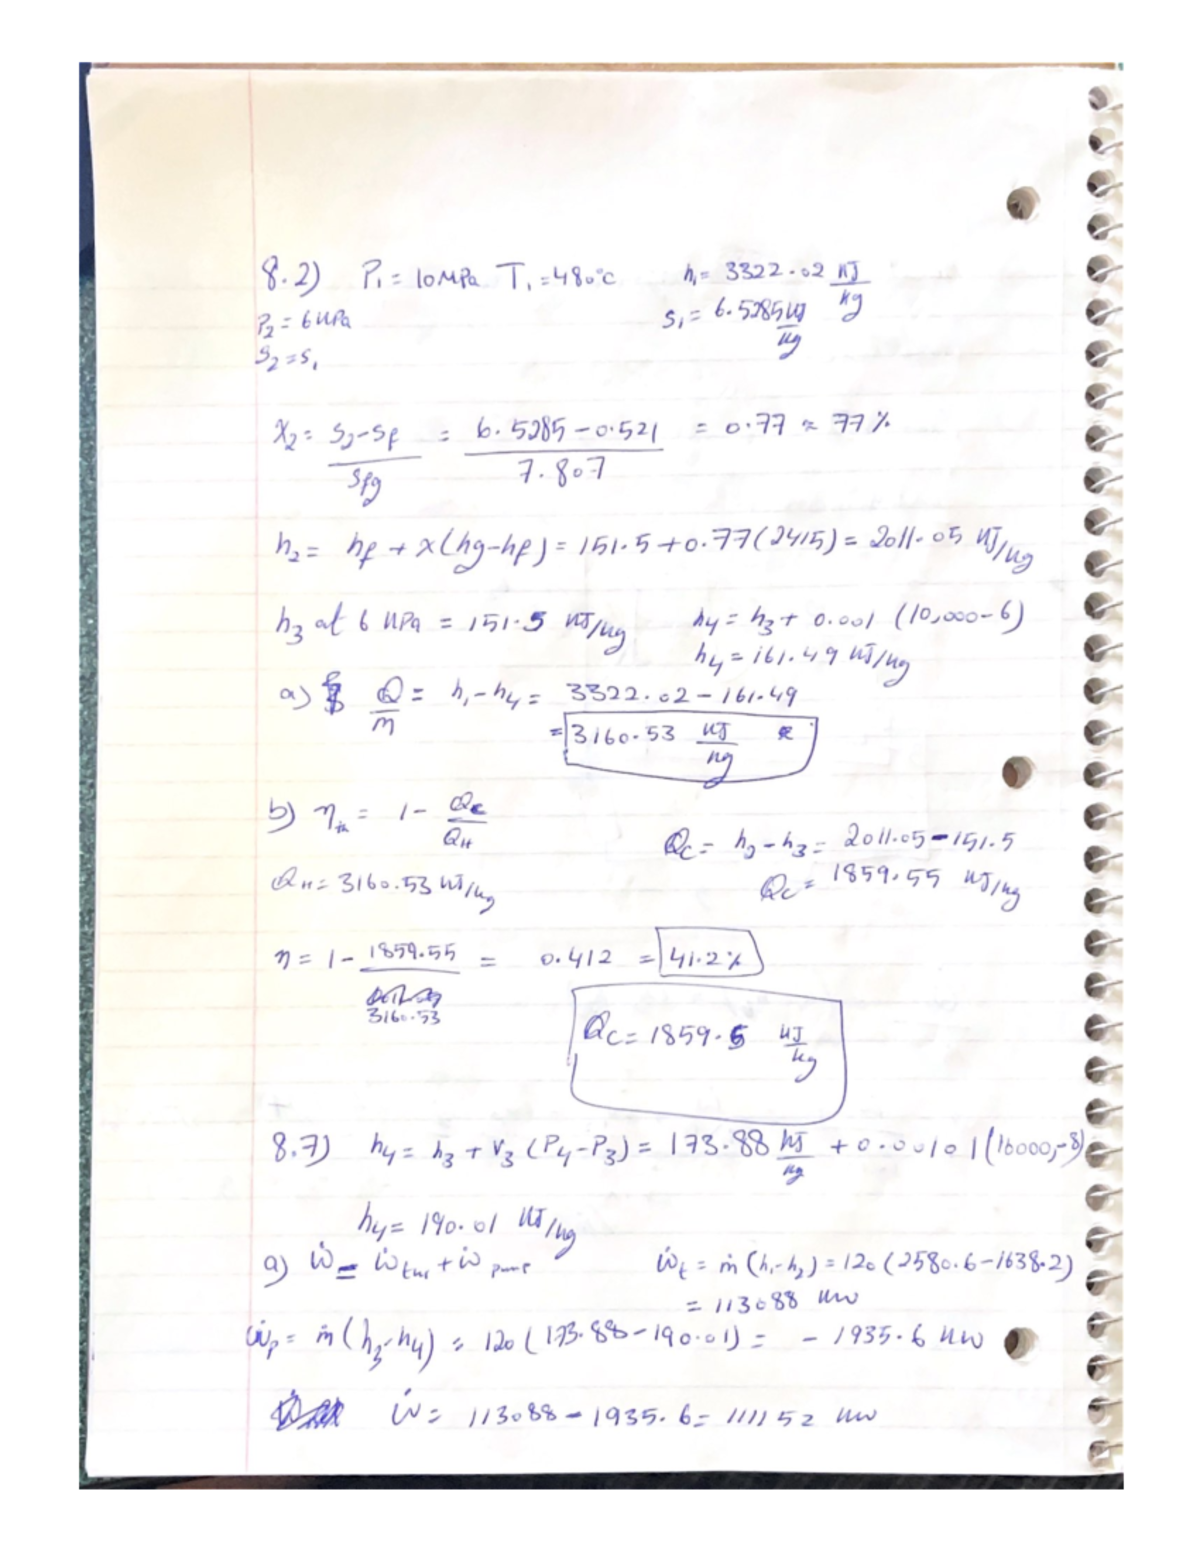 8.2) P₁ = 10MPa T₁ = 480°C h₁ = 3322.02 kJ/kg
P₂ = 6 kPa s₁ = 6.5285 kJ/kg
S₂ = S₁
X₂ = (S₂-Sf)/Sfg = (6.5285-0.521)/7.807 = 0.77 ≈ 77%
h₂ = hf + x(hg-hf) = 151.5 + 0.77(2415) = 2011.05 kJ/kg
h₃ at 6 kPa = 151.5 kJ/kg h₄ = h₃ + 0.001 (10,000-6)
h₄ = 161.49 kJ/kg
a) Q/m = h₁-h₄ = 3322.02-161.49
= 3160.53 kJ/kg
b) ηth = 1 - Qc/QH
Qc = h₂-h₃ = 2011.05-151.5
QH = 3160.53 kJ/kg Qc = 1859.55 kJ/kg
η = 1 - 1859.55/3160.53 = 0.412 = 41.2%
Qc = 1859.5 kJ/kg
8.7) h₄ = h₃ + V₃ (P₄-P₃) = 173.88 kJ/kg + 0.00101(16000,-8)
h₄ = 190.01 kJ/kg
a) ẇ = ẇtur + ẇ pump ẇt = ṁ (h₁-h₂) = 120 (2580.6-1638.2)
= 113088 kw
ẇp = ṁ (h₃-h₄) = 120 (173.88-190.01) = - 1935.6 kw
ẇ = 113088-1935.6 = 111152 kw